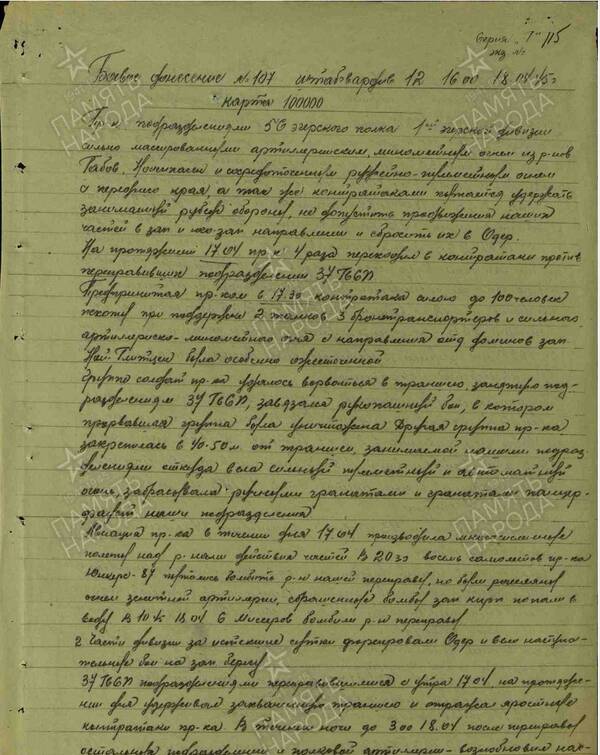 Серия "Г" 115
экз №
Боевое донесение № 107 штабгвардив 12 16 00 18.04.45г
карта 100000
Пр-к подразделениями 56 егерского полка 1ой егерской дивизии
сильно массированным артиллерийским, минометным огнем из р-нов
Габов, Ной и сосредоточенным ружейно-пулеметным огнем
с переднего края а так же контратаками пытается удержать
занимаемый рубеж обороны, не допустить продвижения наших
частей в зап и юго зап направлении и сбросить их в Одер.
На протяжении 17 04 пр-к 4 раза переходил в контратаки против
переправивших подразделений 37 ГвСП
Предпринятая пр-ком в 17 30 контратака силою до 100 человек
пехоты при поддержке 2 танков 3 бронетранспортеров и сильного
артиллериско-минометного огня с направления отд домиков зап
Ной Глитцен была особенно ожесточенной
Группе солдат пр-ка удалось ворваться в траншею, занятую под-
разделением 37 ГвСП, завязался рукопашный бой, в котором
прорвавшая группа была уничтожена Другая группа пр-ка
закрепилась в 40-50 м от траншеи, занимаемой нашими подраз
делениями откуда вела сильный пулеметный и автоматный
огонь, забрасывала ручными гранатами и гранатами панцер-
фауст наши подразделения
Авиация пр-ка в течении дня 17.04 производила многочисленные
полеты над р-нами действия частей В 20 30 восемь самолетов пр-ка
Юнкерс-87 пытались бомбить р-н нашей переправы, но были рассеяны
огнем зенитной артиллерии, сброшенные бомбы зап попали в
воду В 10 18 04 6 Мессеров бомбили р-н переправы
2 Части дивизии за истекшие сутки форсировали Одер и вели наступа-
тельные бои на зап берегу
37 ГвСП подразделениями переправившимися с утра 17 04 на протяже-
нии дня удерживал захваченную траншею и отражал яростные
контратаки пр-ка В течении ночи до 3 00 18.04 после переправы
остальных подразделений и полковой артиллерии - возобновил нас-